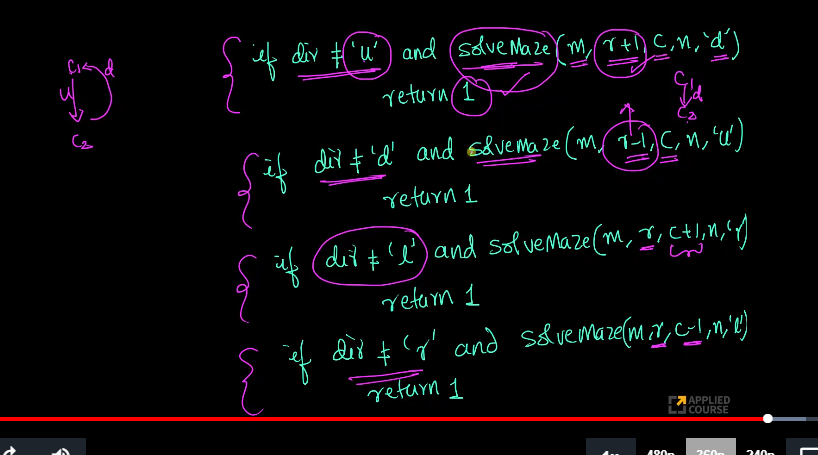 if dir ≠ 'u' and solveMaze(m, r+1, c, n, 'd')
return 1
c1 d
u
c2
c1
d
c2
if dir ≠ 'd' and solveMaze(m, r-1, c, n, 'u')
return 1
if dir ≠ 'l' and solveMaze(m, r, c+1, n, 'r')
return 1
if dir ≠ 'r' and solveMaze(m, r, c-1, n, 'l')
return 1
APPLIED
COURSE
480p 360p 240p